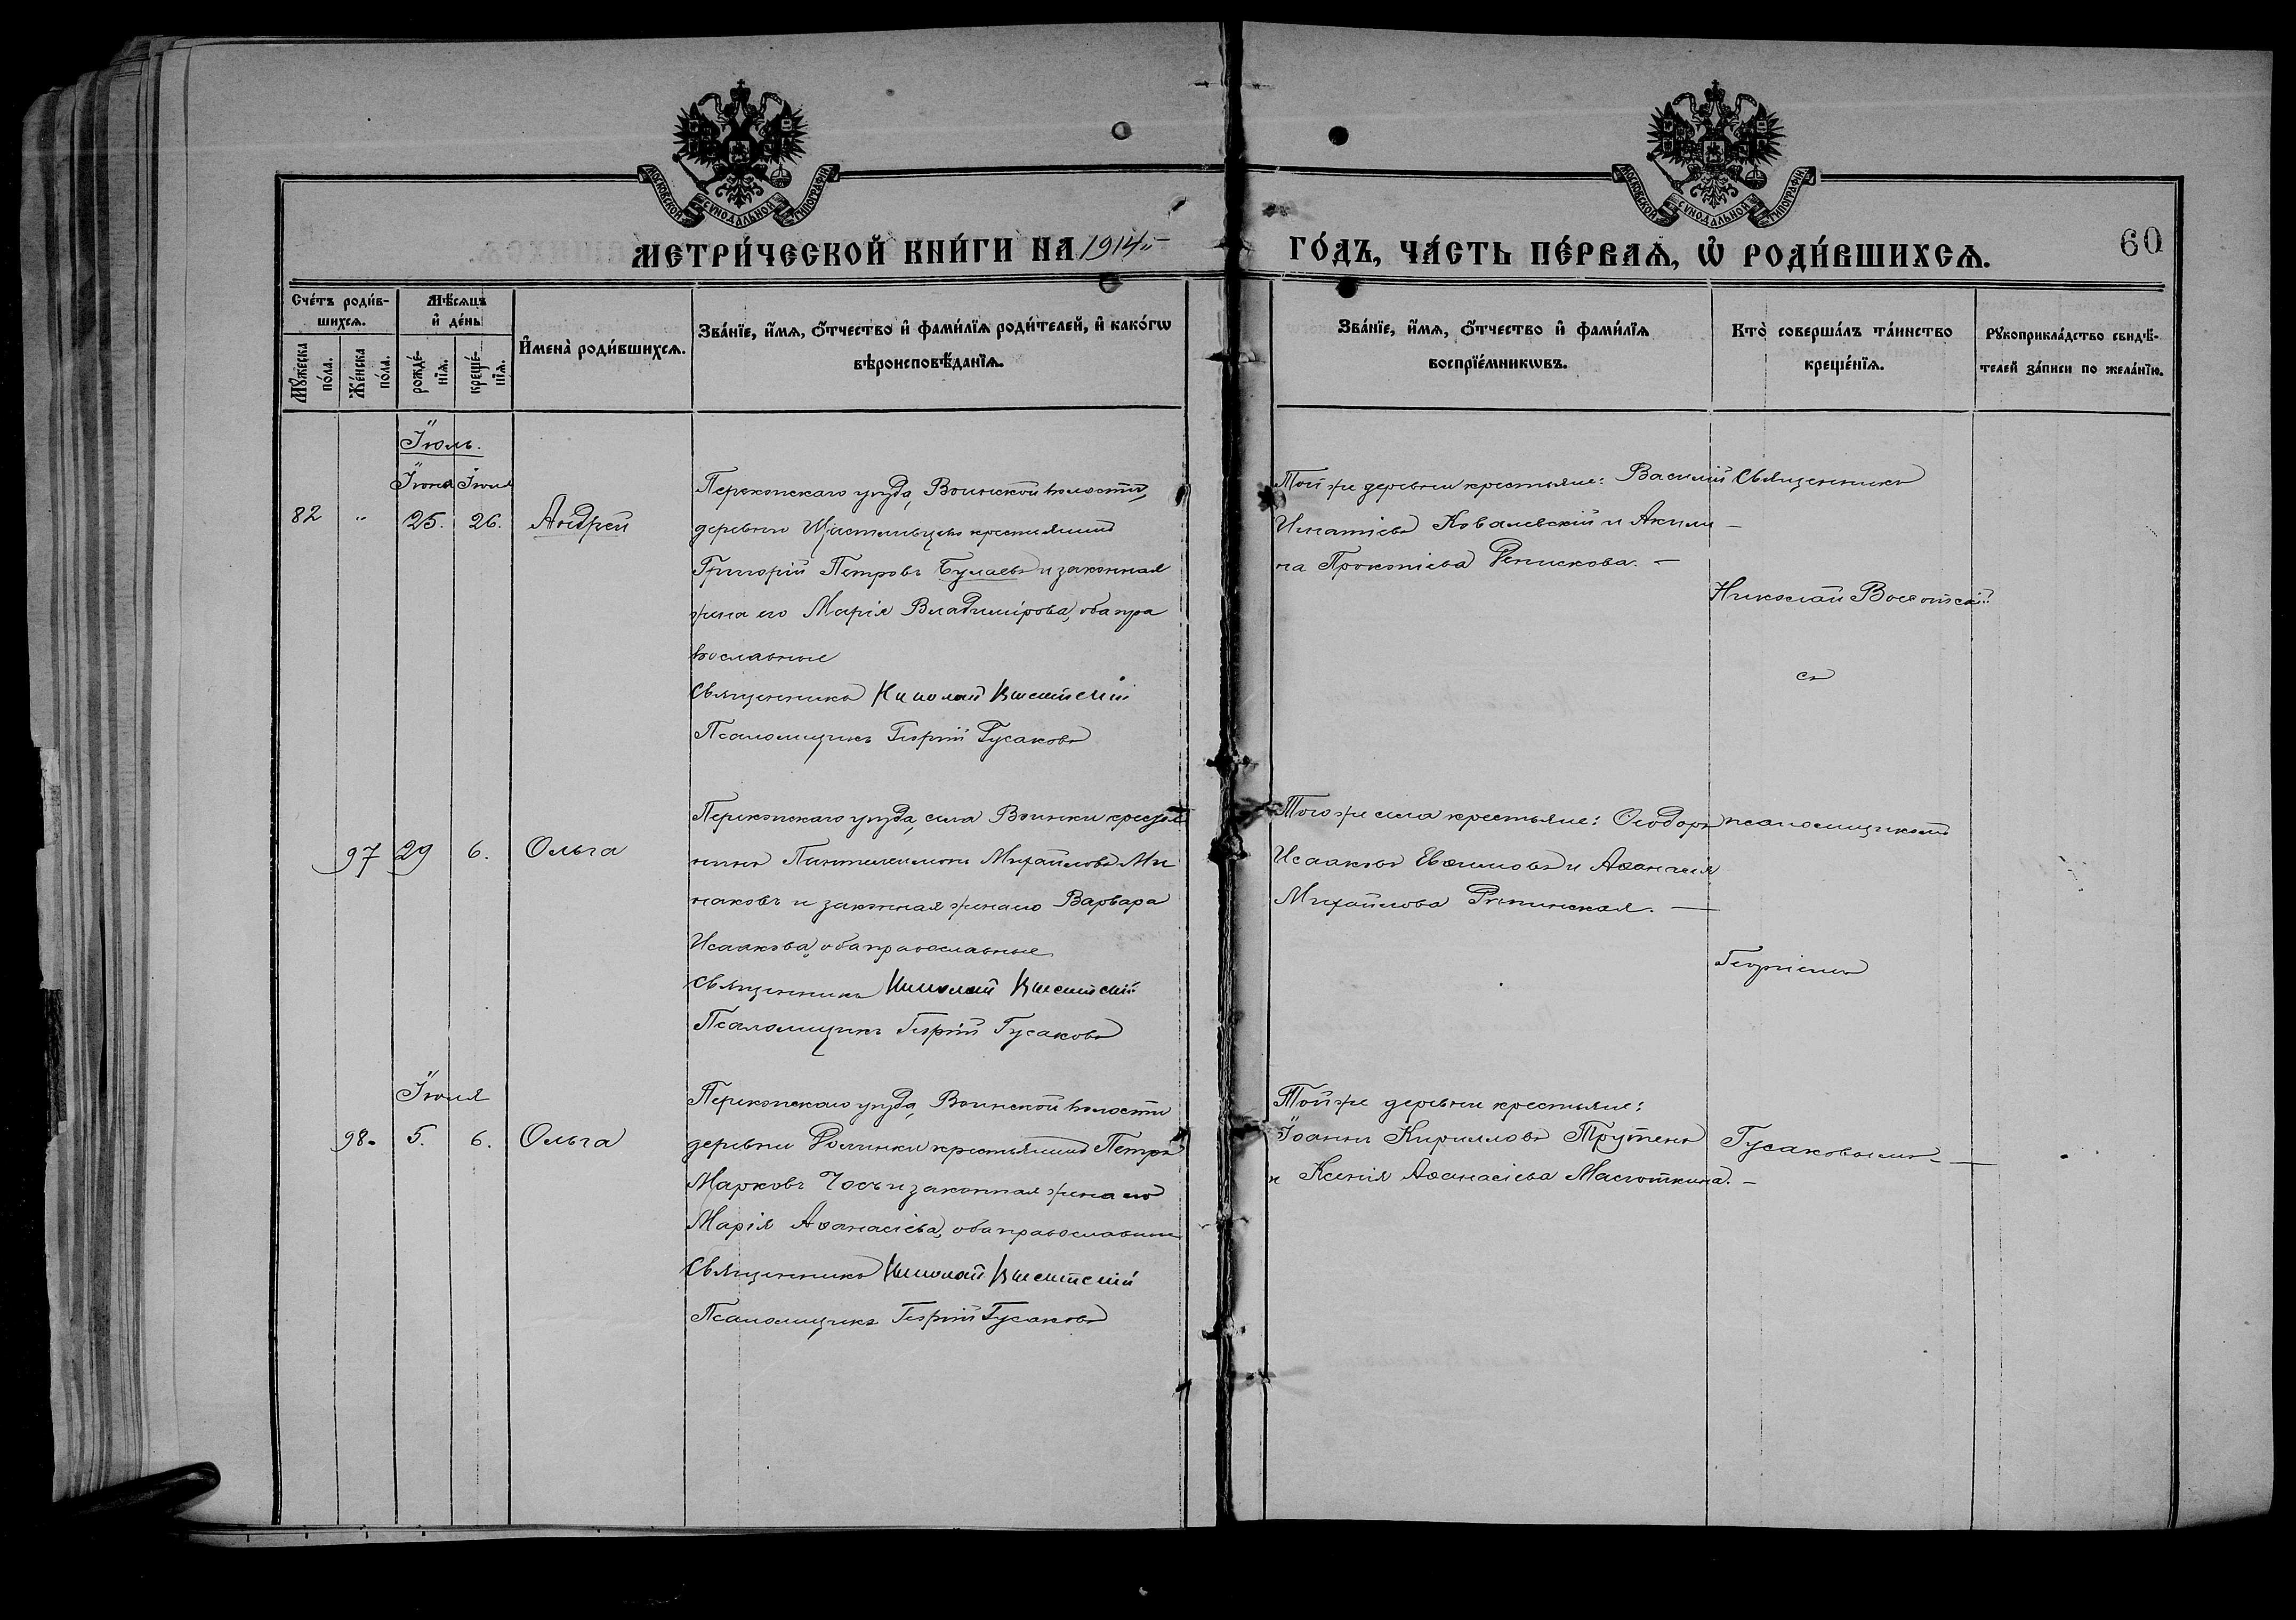 МОСКОВСКОЙ СѴНОДАЛЬНОЙ ТИПОГРАФІИ
МОСКОВСКОЙ СѴНОДАЛЬНОЙ ТИПОГРАФІИ
МЕТРИ́ЧЕСКОЙ КНИ́ГИ НА 1914 ГО́ДЪ, ЧА́СТЬ ПЕ́РВАѦ, Ѡ҆ РОДИ́ВШИХСѦ.
60
Сче́тъ роди́в-
шихсѧ.
Мꙋ́жеска
по́ла.
Же́нска
по́ла.
Мѣ́сѧцъ
и҆ де́нь
рожде́-
нїѧ.
креще́-
нїѧ.
И҆мена̀ роди́вшихсѧ.
Зва́нїе, и҆́мѧ, ѻ҆́тчество и҆ фами́лїѧ роди́телей, и҆ како́гѡ
вѣроисповѣ́данїѧ.
Зва́нїе, и҆́мѧ, ѻ҆́тчество и҆ фами́лїѧ
воспрїе́мникѡвъ.
Кто̀ соверша́лъ та́инство
креще́нїѧ.
Рꙋкоприкла́дство свидѣ́-
телей за́писи по жела́нїю.
Іюль.
Іюня Іюля
82 " 25. 26. Андрей
Перекопскаго уѣзда, Воинской волости,
деревни Щастливцево крестьянинъ
Григорій Петровъ Булаевъ и законная
жена его Марія Владимірова, оба пра
вославные
Священникъ Николай Высотскій
Псаломщикъ Георгій Гусаковъ
Той же деревни крестьяне: Василій
Игнатіевъ Ковалевскій и Акили-
на Прокопіева Репискова. —
Священникъ
Николай Высотскій
съ
97 29 6. Ольга
Перекопскаго уѣзда, села Воинки крестья
нинъ Пантелеимонъ Михайловъ Ми
наковъ и законная жена его Варвара
Исаакова, оба православные
Священникъ Николай Высотскій
Псаломщикъ Георгій Гусаковъ
Того же села крестьяне: Ѳеодоръ
Исааковъ Евѳимовъ и Аѳанасія
Михайлова Репинская. —
псаломщикомъ
Георгіемъ
Іюля
98. 5. 6. Ольга
Перекопскаго уѣзда, Воинской волости
деревни крестьянинъ Петръ
Марковъ Чосъ и законная жена его
Марія Аѳанасіева, оба православные
Священникъ Николай Высотскій
Псаломщикъ Георгій Гусаковъ
Той же деревни крестьяне:
Іоаннъ Кирилловъ Трутень
и Ксенія Аѳанасіева Маслоткина. —
Гусаковымъ —